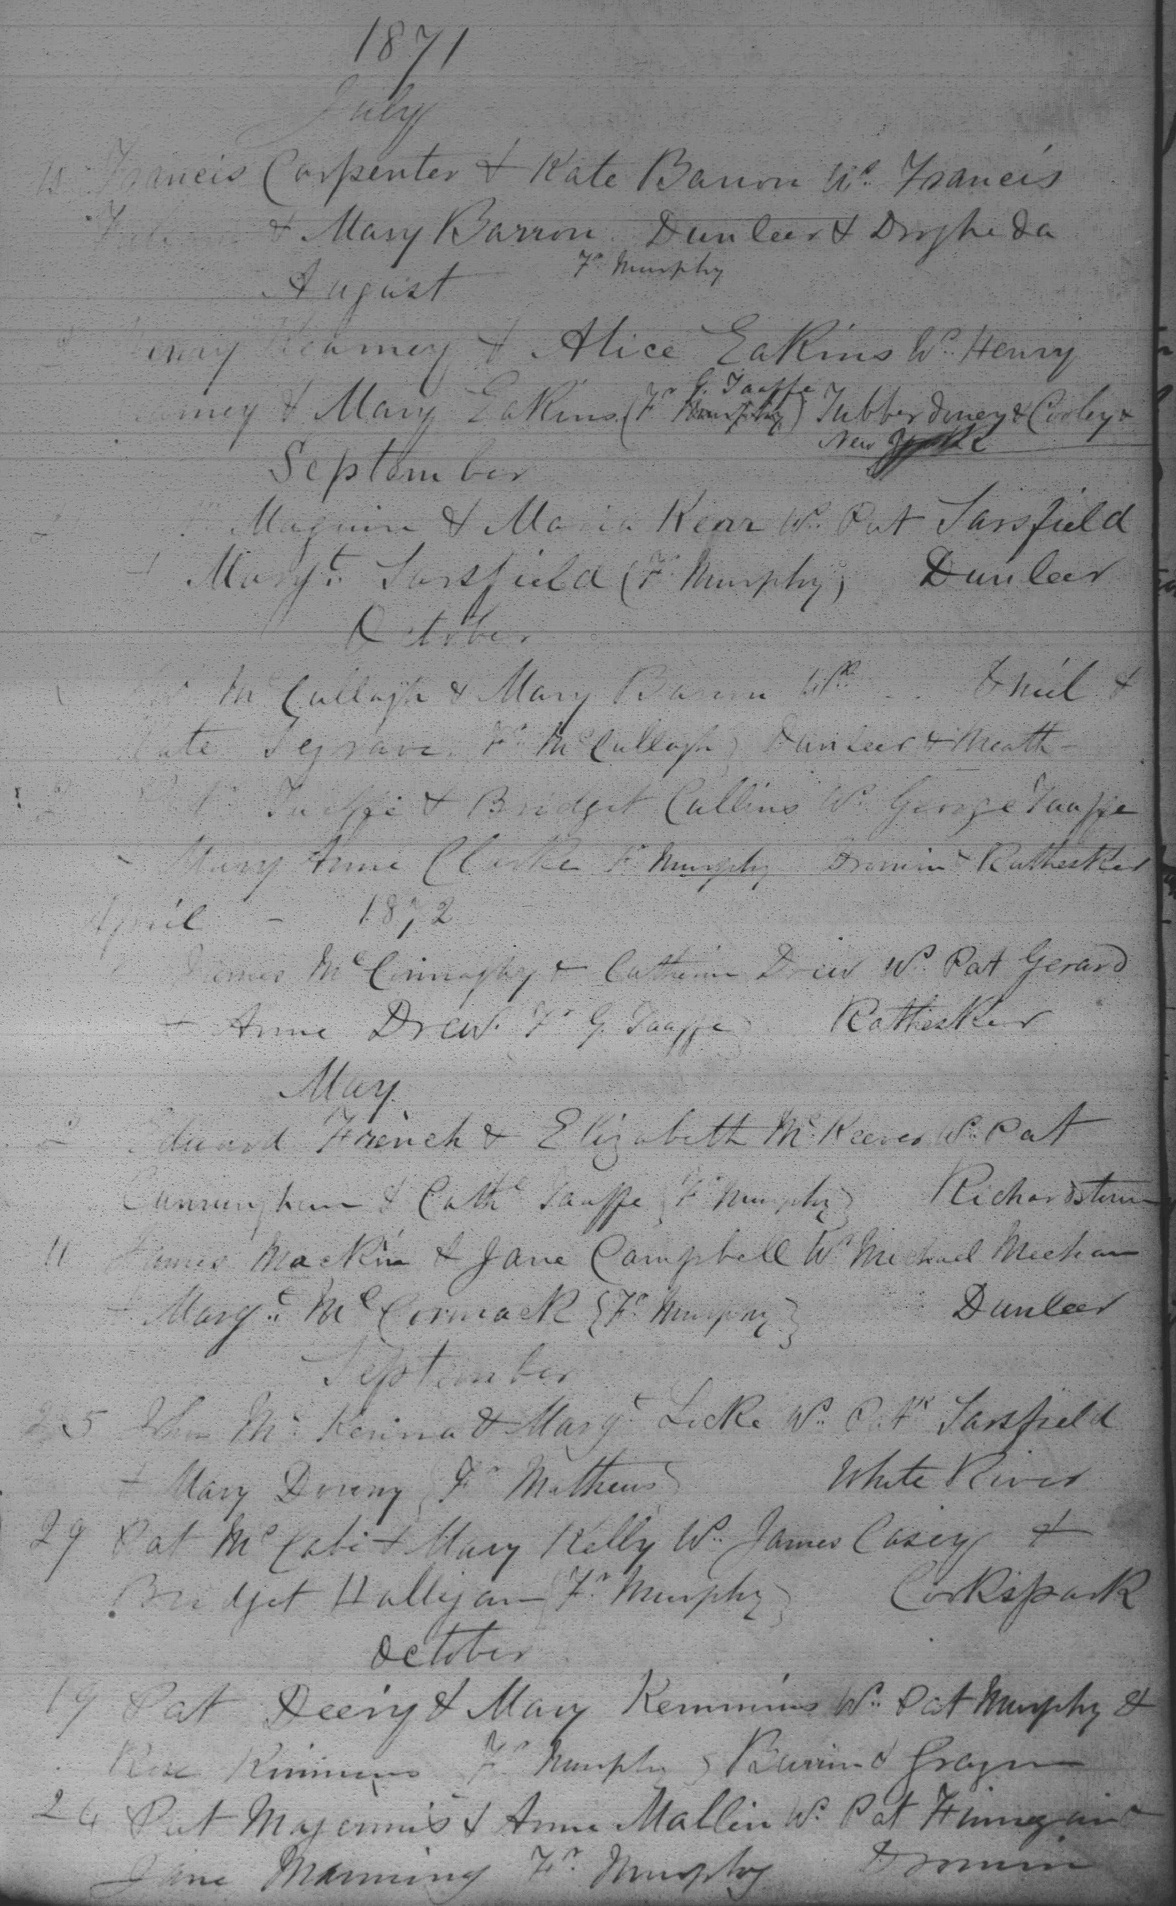 1871
July
Francis Carpenter & Kate Barron Ws. Francis
& Mary Barron. Dunleer & Drogheda
Fr Murphy
August
Henry Kearney & Alice Eakins Ws. Henry
& Mary Eakins (Fr G. Taaffe) Tubberdoney & Cooley &
New York
September
Maguire & Maria Kerr Ws. Pat Sarsfield
+ Margt. Sarsfield (Fr Murphy) Dunleer
October
McCullagh & Mary Barron Ws &
Kate Segrave. Fr McCullagh) Dunleer & Meath
Taaffe & Bridget Collins Ws. George Taaffe
Mary Anne Clarke Fr Murphy Dromin & Rathesker
April - 1872
James McConnaghy & Catherine Drew Ws. Pat Gerard
+ Anne Drew. Fr G. Taaffe) Rathesker
May.
2 Edward French & Elizabeth McKeever Ws. Pat
Cunningham & Cathe Taaffe {Fr Murphy} Richardstown
11 James Mackin & Jane Campbell Ws Michael Meehan
+ Margt. McCormack {Fr Murphy} Dunleer
September
25 John McKenna & Margt Locke Ws. Patk Sarsfield
+ Mary Doreny {Fr Mathews} White River
29 Pat McCabe & Mary Kelly Ws. James Casey &
Bridget Halligan {Fr Murphy} Corkspark
October
19 Pat Deery & Mary Kemmins Ws. Pat Murphy &
Rose Kimmins Fr Murphy)
24 Pat Magennis & Anne Mallin Ws. Pat Finnegan &
Jane Manning Fr Murphy Dromin